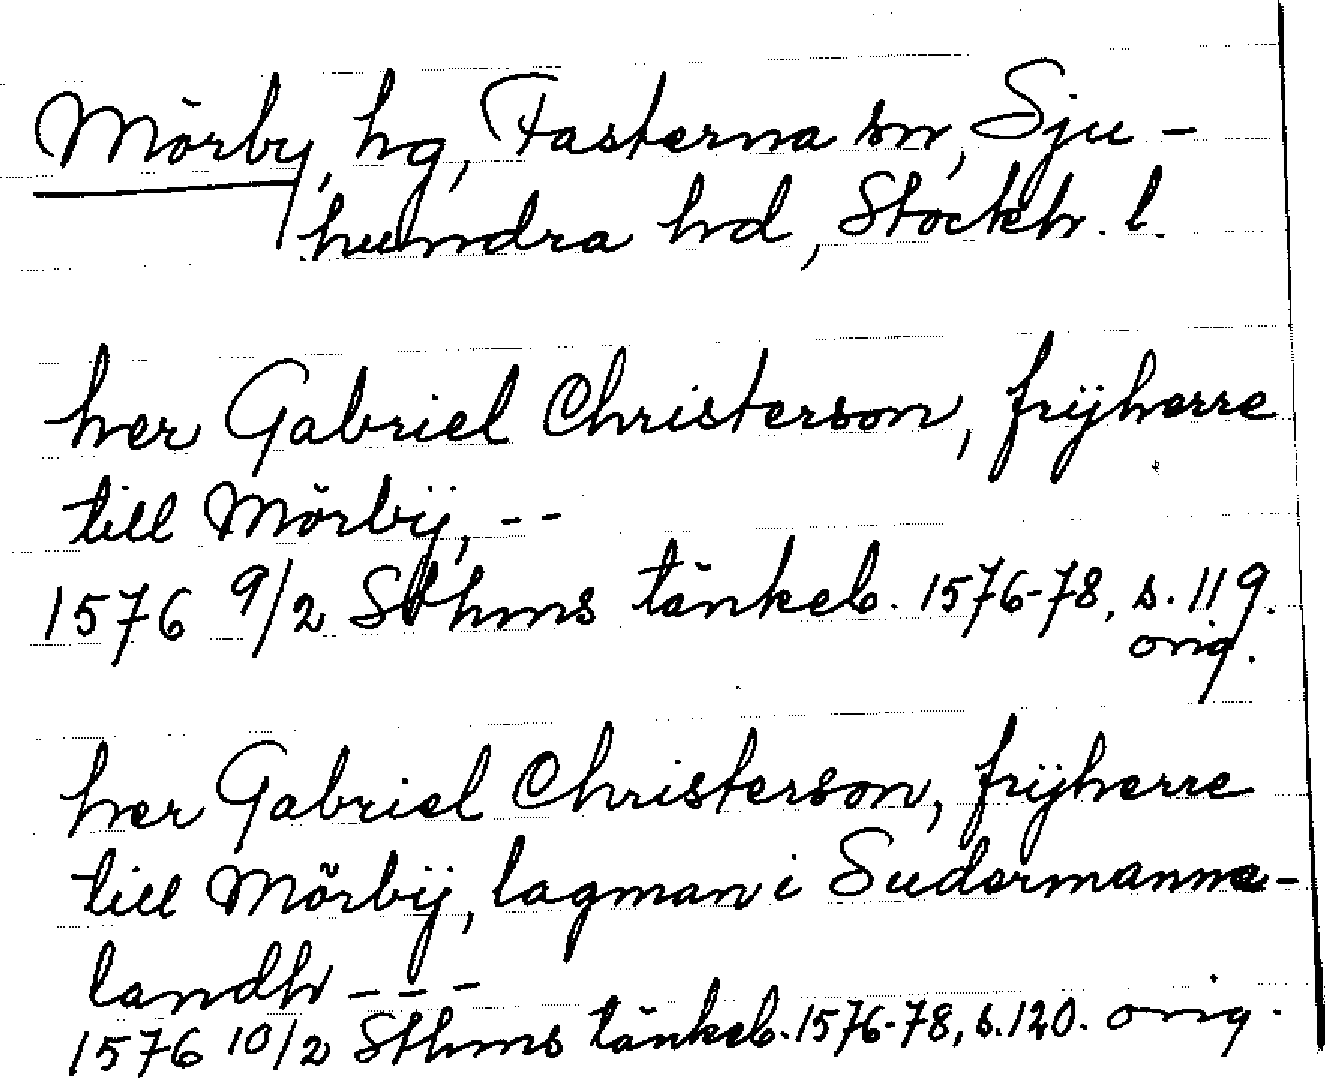 Mörby, hg, Fasterna sn, Sju-
hundra hd, Stockh. l.
her Gabriel Christerson, frijherre
till Mörbij, --
1576 9/2 Sthms tänkeb. 1576-78, s. 119.
orig.
her Gabriel Christerson, frijherre
till Mörbij, lagman i Sudermanna-
landh ---
1576 10/2 Sthms tänkeb. 1576-78, s. 120. orig.